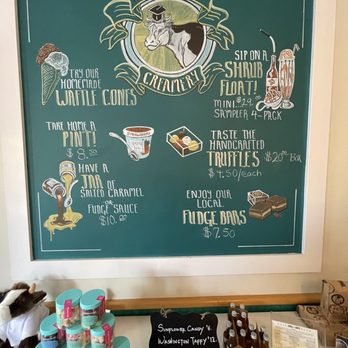 CREAMERY
TRY OUR
HOMEMADE
WAFFLE CONES
SIP ON A
SHRUB
FLOAT!
MINI
SAMPLER 4-PACK
TAKE HOME A
PINT!
TASTE THE
HANDCRAFTED
TRUFFLES
$4.50/each
HAVE A
JAR OF
SALTED CARAMEL
OR
FUDGE SAUCE
ENJOY OUR
LOCAL
FUDGE BARS
$7.50
SUNFLOWER CANDY
WASHINGTON TAFFY $12